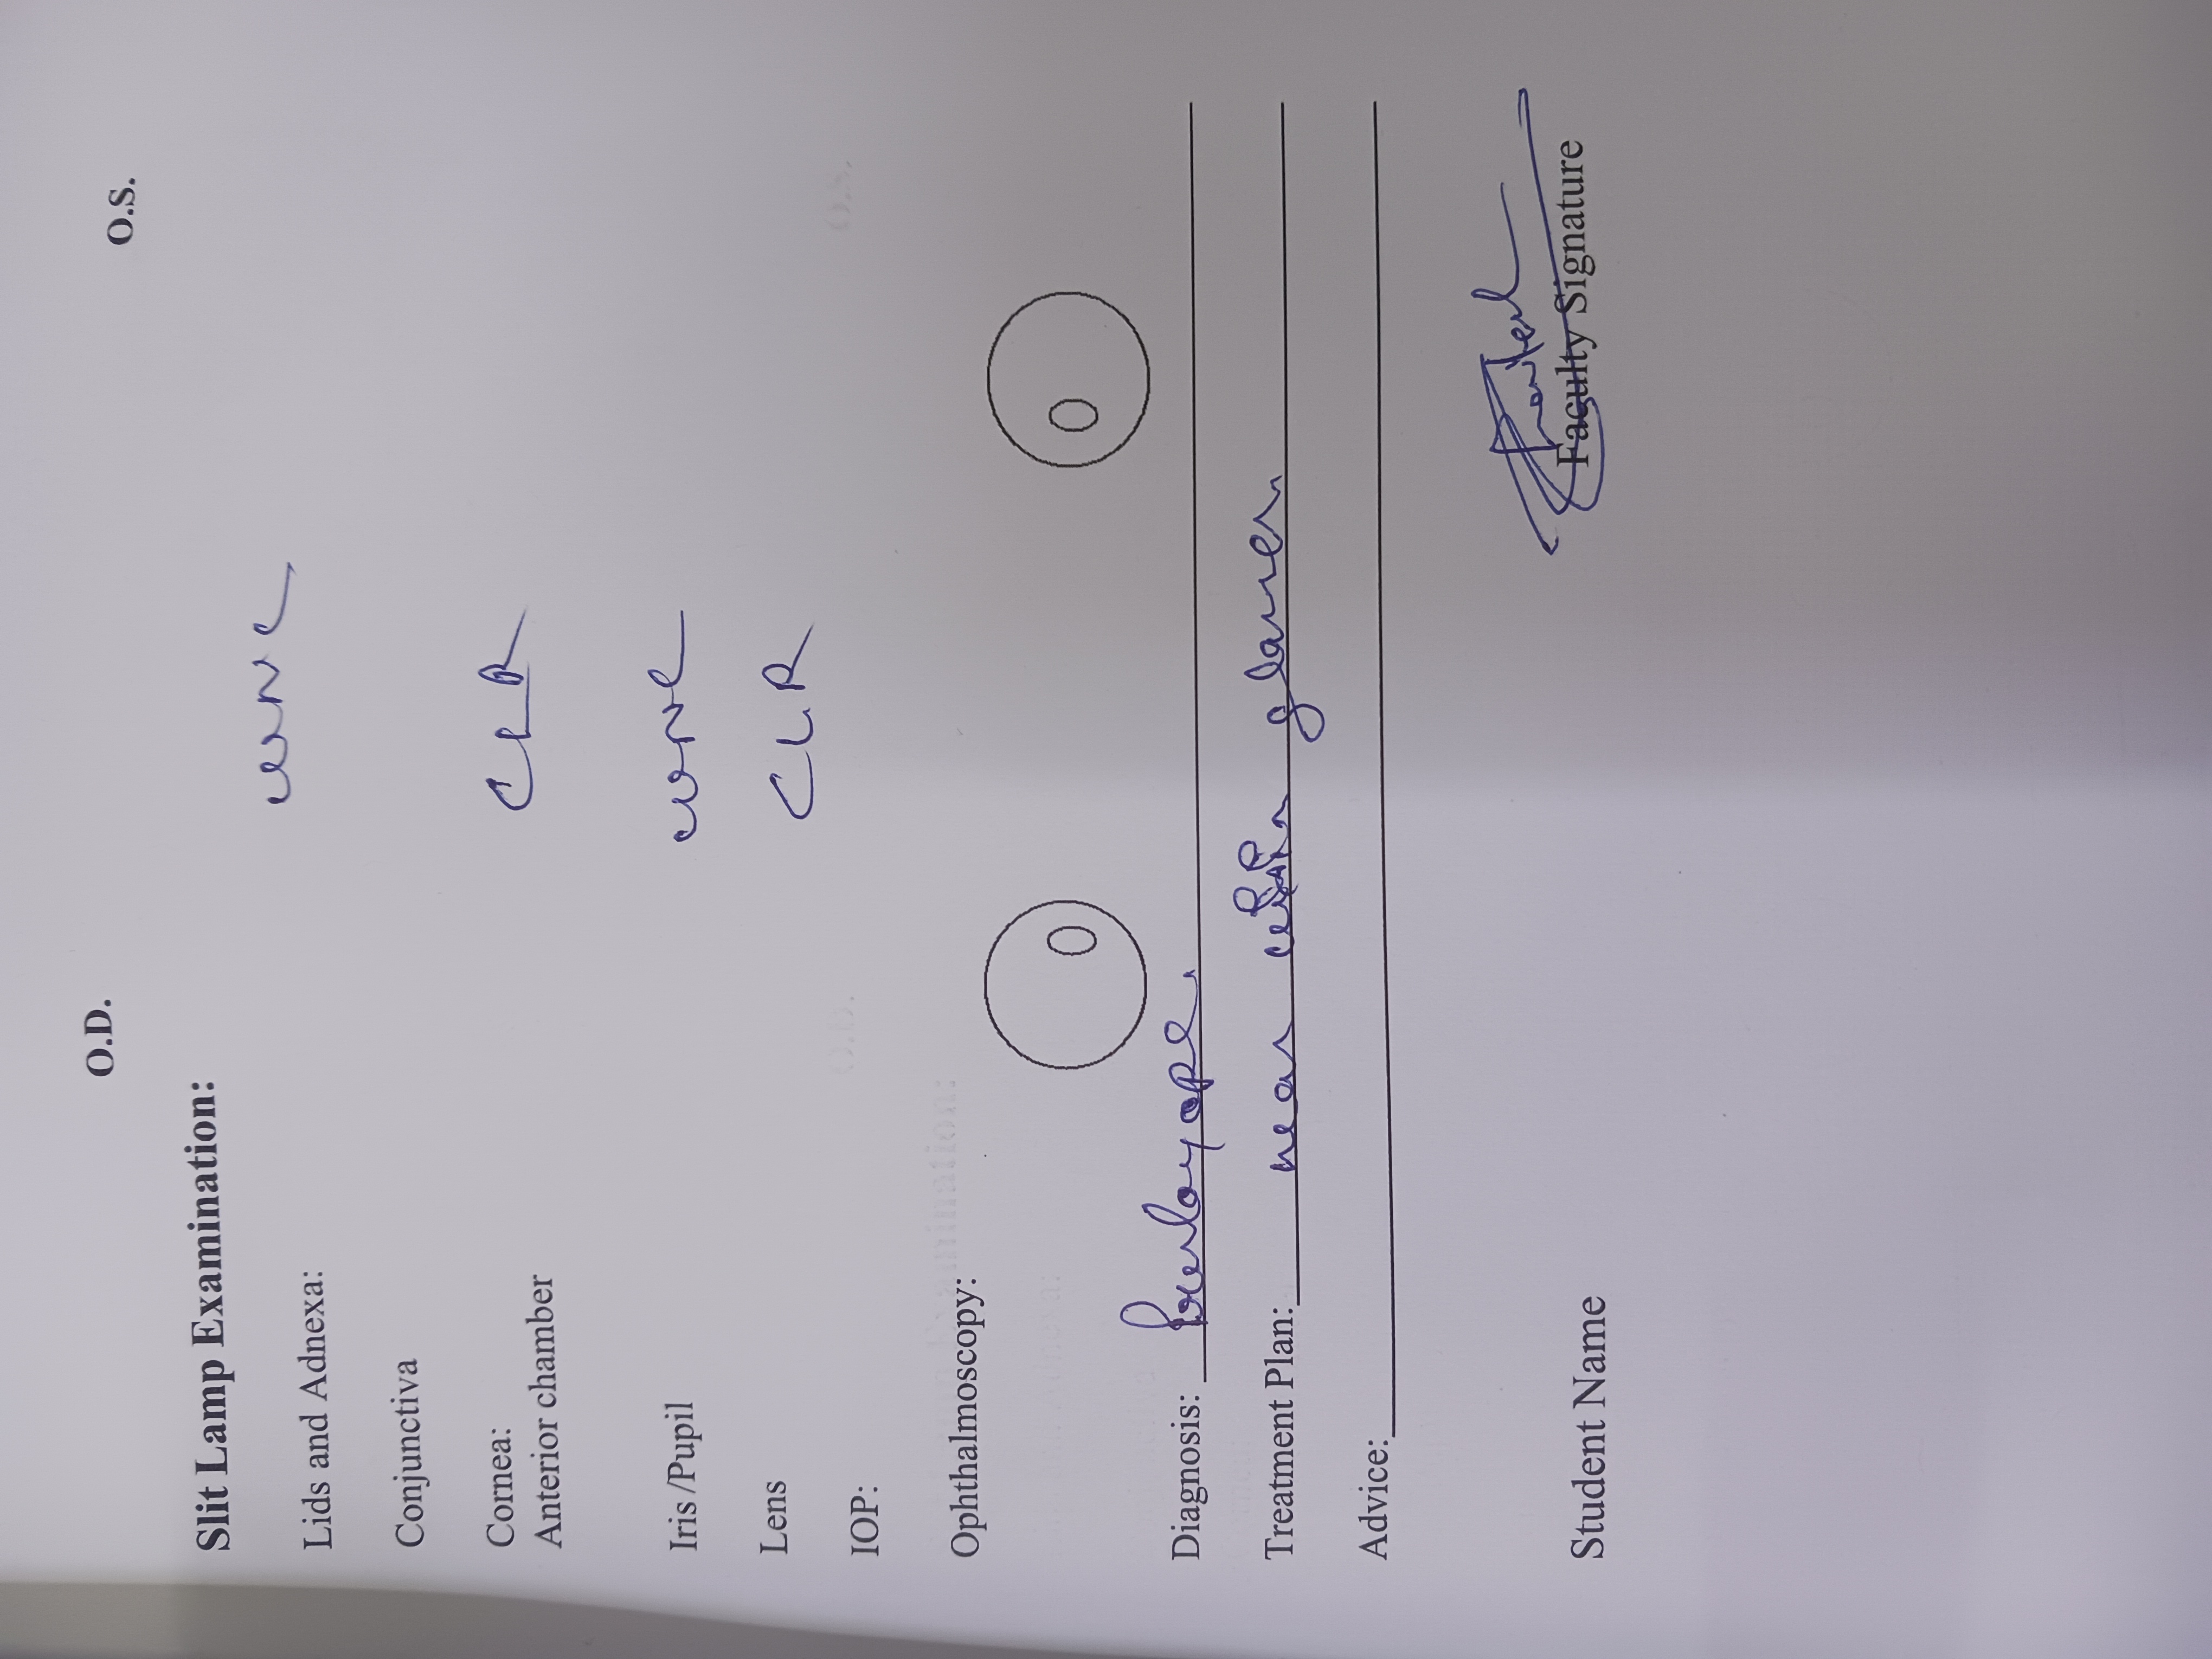 O.D. O.S.
Slit Lamp Examination:
WNL
Lids and Adnexa:
Conjunctiva
Cornea: CLR
Anterior chamber
Iris /Pupil WNL
Lens CLR
IOP:
Ophthalmoscopy:
Diagnosis:
Treatment Plan: near glasses
Advice:
Student Name Faculty Signature